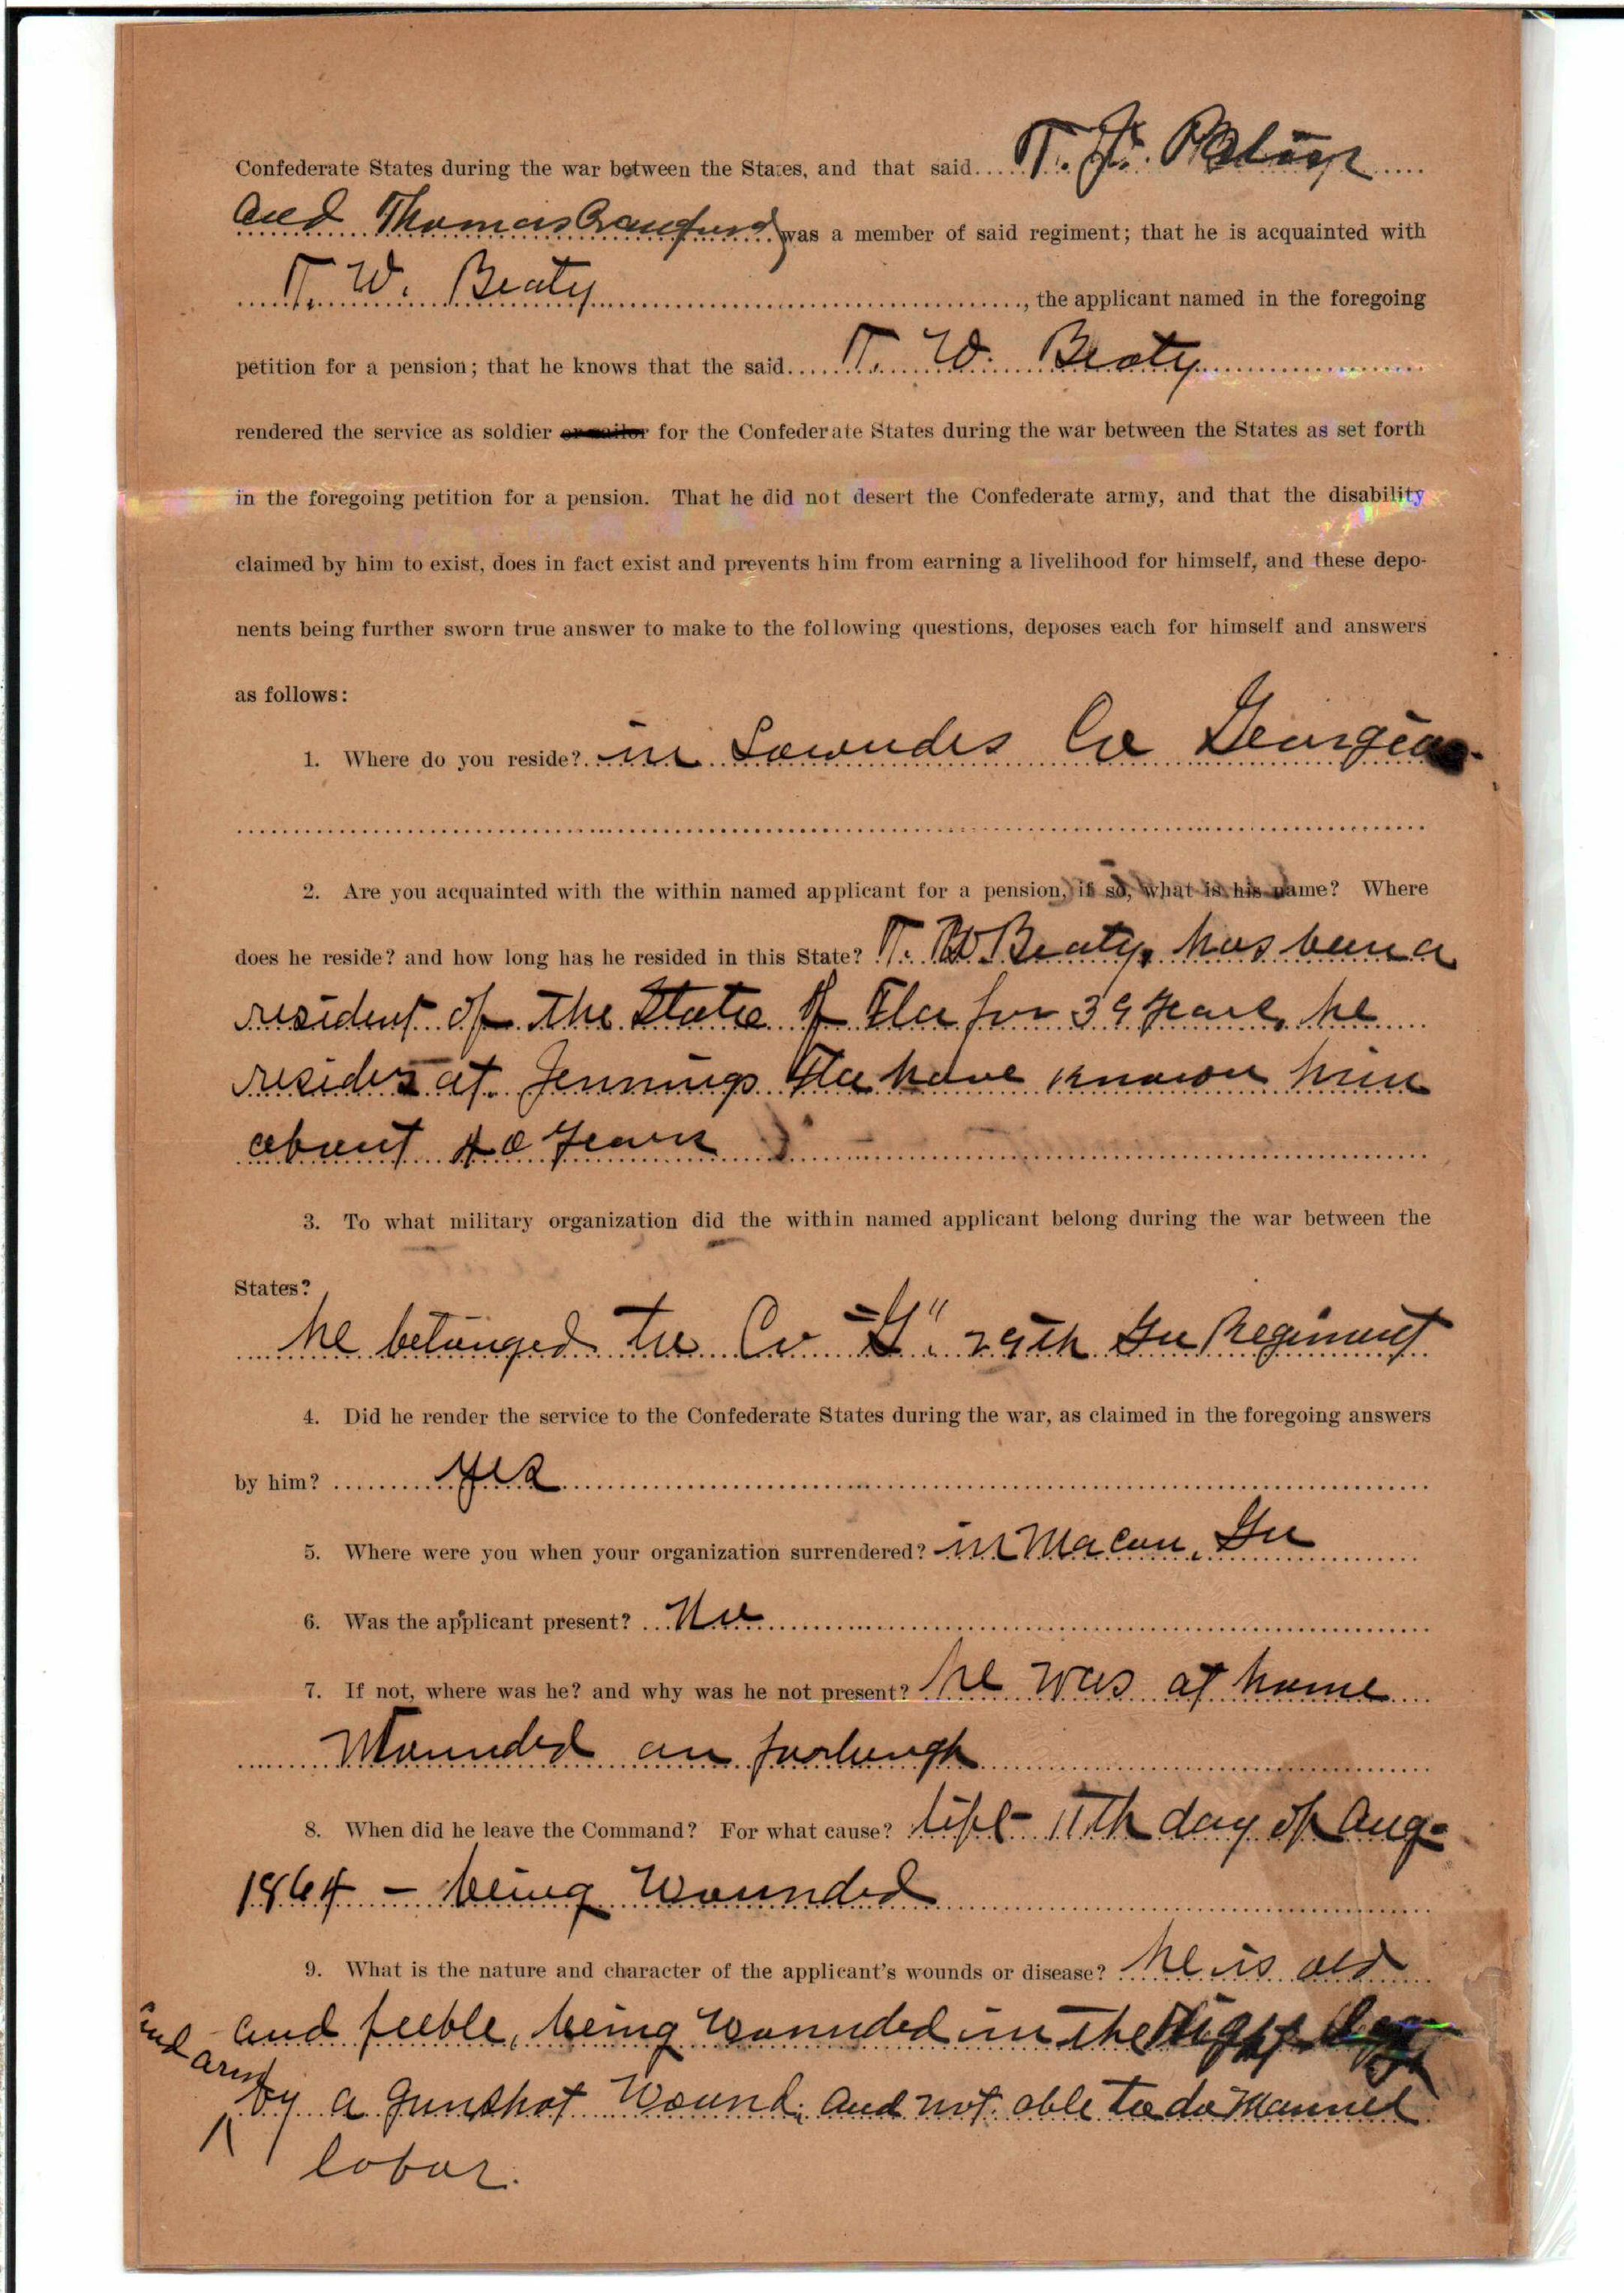 Confederate States during the war between the States, and that said T.
and Thomas Crawford was a member of said regiment; that he is acquainted with
T. W. Beaty, the applicant named in the foregoing
petition for a pension; that he knows that the said T. W. Beaty
rendered the service as soldier or sailor for the Confederate States during the war between the States as set forth
in the foregoing petition for a pension. That he did not desert the Confederate army, and that the disability
claimed by him to exist, does in fact exist and prevents him from earning a livelihood for himself, and these depo-
nents being further sworn true answer to make to the following questions, deposes each for himself and answers
as follows:
1. Where do you reside? in Lowndes Co Georgia
2. Are you acquainted with the within named applicant for a pension, if so, what is his name? Where
does he reside? and how long has he resided in this State? T. W Beaty, has been a
resident of the State of Fla for 39 years, he
resides at Jennings Fla have known him
about 40 years
3. To what military organization did the within named applicant belong during the war between the
States?
he belonged to Co "G" 29th Ga Regiment
4. Did he render the service to the Confederate States during the war, as claimed in the foregoing answers
by him? yes
5. Where were you when your organization surrendered? in Macon, Ga
6. Was the applicant present? No
7. If not, where was he? and why was he not present? he was at home
Wounded on furlough
8. When did he leave the Command? For what cause? left - 11th day of Aug-
1864 - being Wounded
9. What is the nature and character of the applicant's wounds or disease? he is old
and feeble, being Wounded in the Right leg
and arm
by a gunshot Wound, and not able to do Manuel
labor.